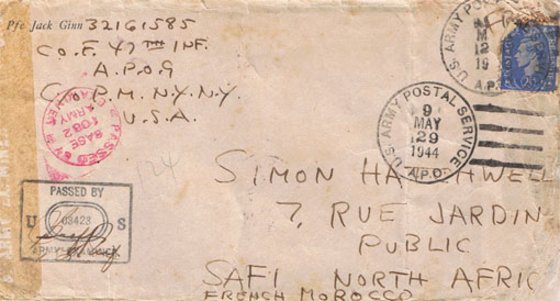 Pfc Jack Ginn 32161585
CO. F. 47TH INF.
A.P.O 9
C/O P.M. N.Y. N.Y.
U.S.A.
PASSED BY
BASE
1082
ARMY
EXAMINER
U.S. ARMY POSTAL SERVICE
M
12
19
A.P.
U.S. ARMY POSTAL SERVICE
9
MAY
29
1944
A.P.O.
PASSED BY
U 03423 S
ARMY EXAMINER
SIMON
7, RUE JARDIN
PUBLIC
SAFI NORTH AFRIC
FRENCH MOROCCO